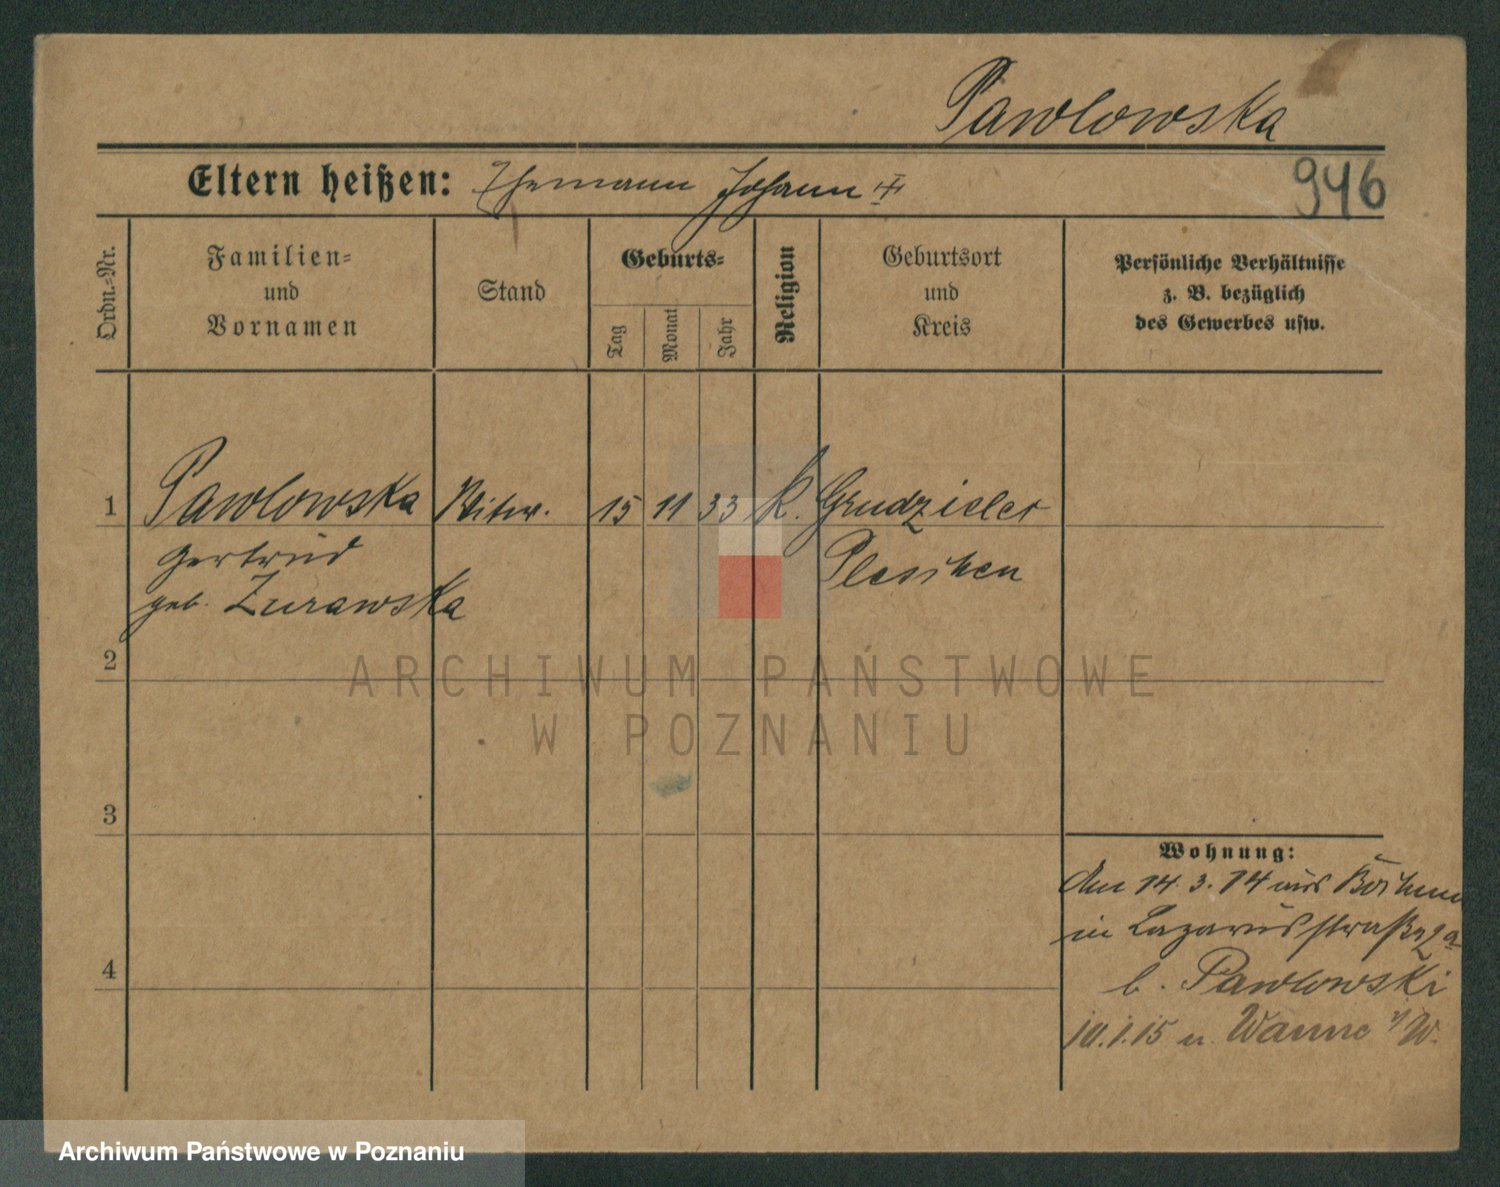 Pawlowska
Eltern heißen: Ehemann Johann
946
Ordn.=Nr.
Familien=
und
Vornamen
Stand
Geburts=
Tag
Monat
Jahr
Religion
Geburtsort
und
Kreis
Persönliche Verhältnisse
z. B. bezüglich
des Gewerbes usw.
1 Pawlowska Witw. 15 11 33 k. Grudzielec
Gertrud Pleschen
geb. Zurawska
2
ARCHIWUM PAŃSTWOWE
W POZNANIU
3
Wohnung:
Am 14. 3. 14 aus
in Lazarusstraße 2a
4
b. Pawlowski
10.1.15 n. Wanne i/W.
Archiwum Państwowe w Poznaniu